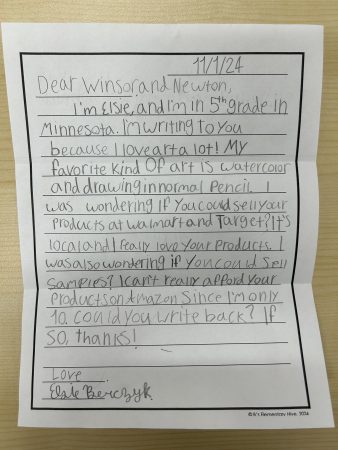 11/1/24
Dear Winsor and Newton,
I'm Elsie, and I'm in 5th grade in
Minnesota. I'm writing to you
because I love art a lot! My
favorite kind Of art is watercolor
and drawing in normal Pencil. I
was wondering if You could sell your
Products at walmart and Target? It's
local and I really love Your Products. I
was also wondering if you could Sell
Samples? I can't really afford your
Products on Amazon Since I'm only
10. Could you write back? If
SO, thanks!
Love
Elsie